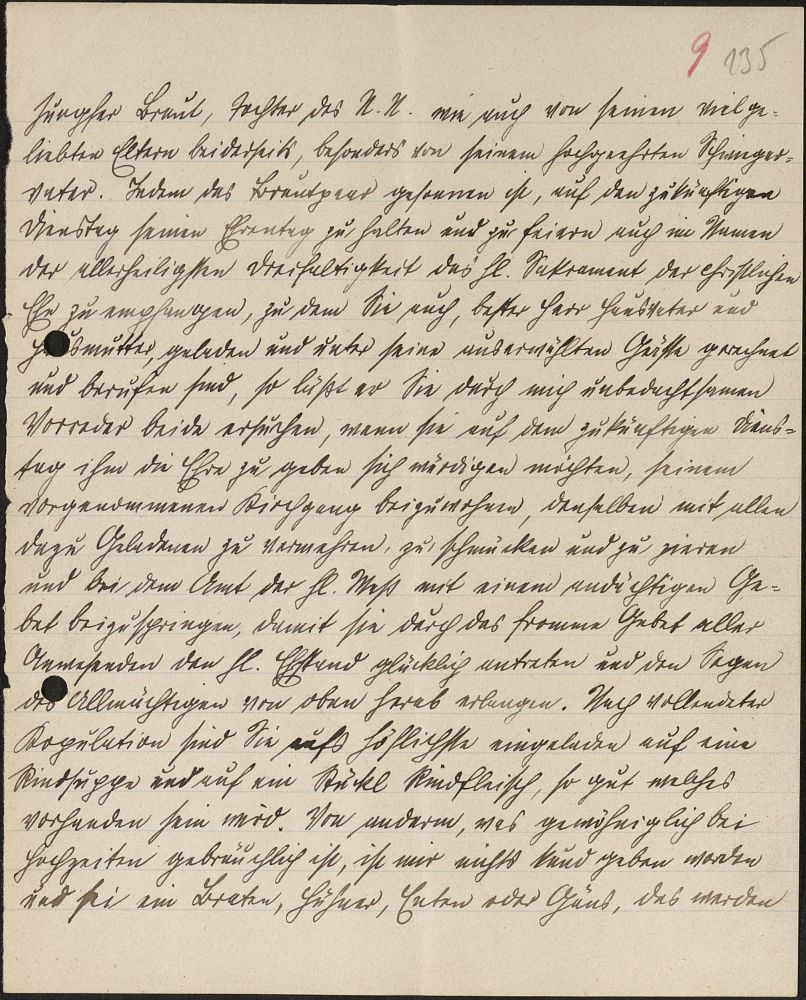 9 135
Jungfer Braut, Tochter des N. N. wie auch von seinen vielge-
liebten Eltern beiderseits, besonders von seinem hochgeehrten Schwieger-
vater. Indem das Brautpaar gesonnen ist, auf den zukünftigen
Dienstag seinen Ehrentag zu halten und zu feiern auch im Namen
der allerheiligsten Dreifaltigkeit das hl. Sakrament der christlichen
Ehe zu empfangen, zu dem Sie auch, bester Herr Hausvater und
Hausmutter, geladen und unter seine auserwählten Gäste gerechnet
und berufen sind, so läßt er Sie durch mich unbedachtsamen
Vorreder beide ersuchen, wenn sie auf dem zukünftigen Diens-
tag ihm die Ehre zu geben sich würdigen möchten, seinem
vorgenommenen Kirchgang beizuwohnen, denselben mit allen
dazu Geladenen zu vermehren, zu schmücken und zu zieren
und bei dem Amt der hl. Meß mit einem andächtigen Ge-
bet beizuspringen, damit sie durch das fromme Gebet aller
Anwesenden den hl. Ehstand glücklich antreten und den Segen
des Allmächtigen von oben herab erlangen. Nach vollendeter
Kopulation sind Sie aufs höflichste eingeladen auf eine
Rindsuppe und auf ein Stückl Rindfleisch, so gut welches
vorhanden sein wird. Von anderm, was gewöhniglich bei
Hochzeiten gebräuchlich ist, ist mir nichts kund geben worden
und sei ein Braten, Hühner, Enten oder Gäns, das werden